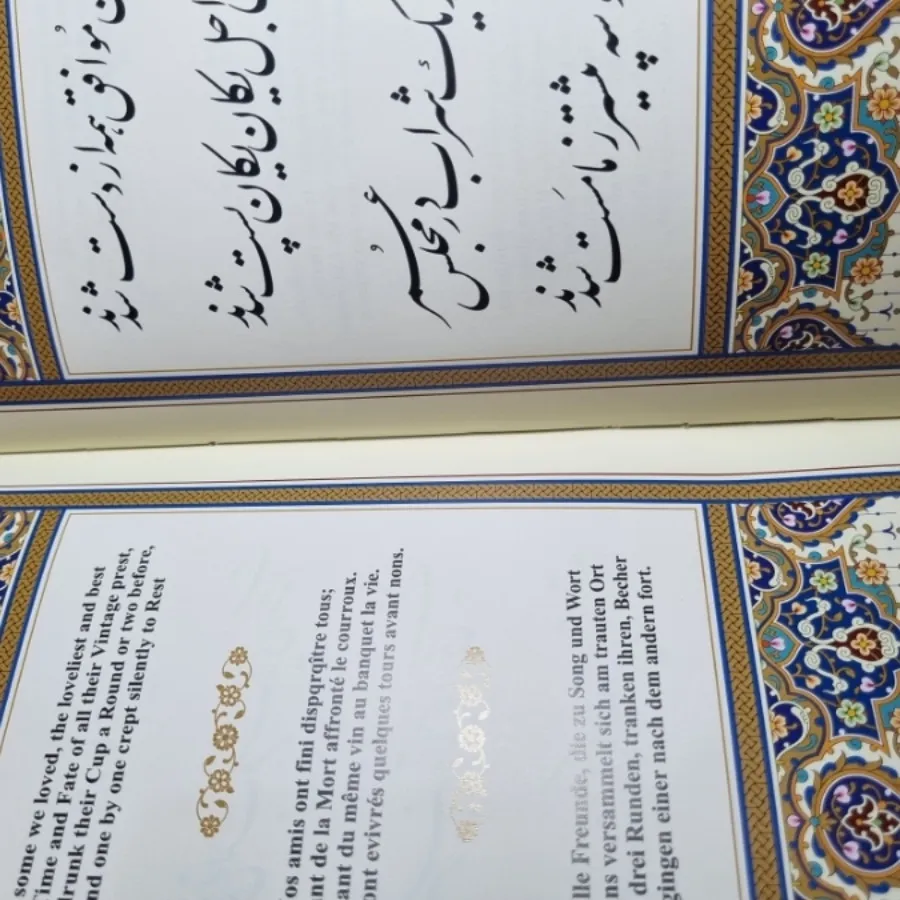 موافق همه از دست شدند
اجل یکان یکان پست شدند
یک شراب در مجلس عمر
سه پیشتر ز ما مست شدند
some we loved, the loveliest and best
Time and Fate of all their Vintage prest,
drunk their Cup a Round or two before,
nd one by one crept silently to Rest
os amis ont fini dispqrqître tous;
nt de la Mort affronté le courroux.
ant du même vin au banquet la vie.
ont evivrés quelques tours avant nons.
lle Freunde, die zu Song und Wort
ns versammelt sich am trauten Ort
drei Runden, tranken ihren, Becher
gingen einer nach dem andern fort.